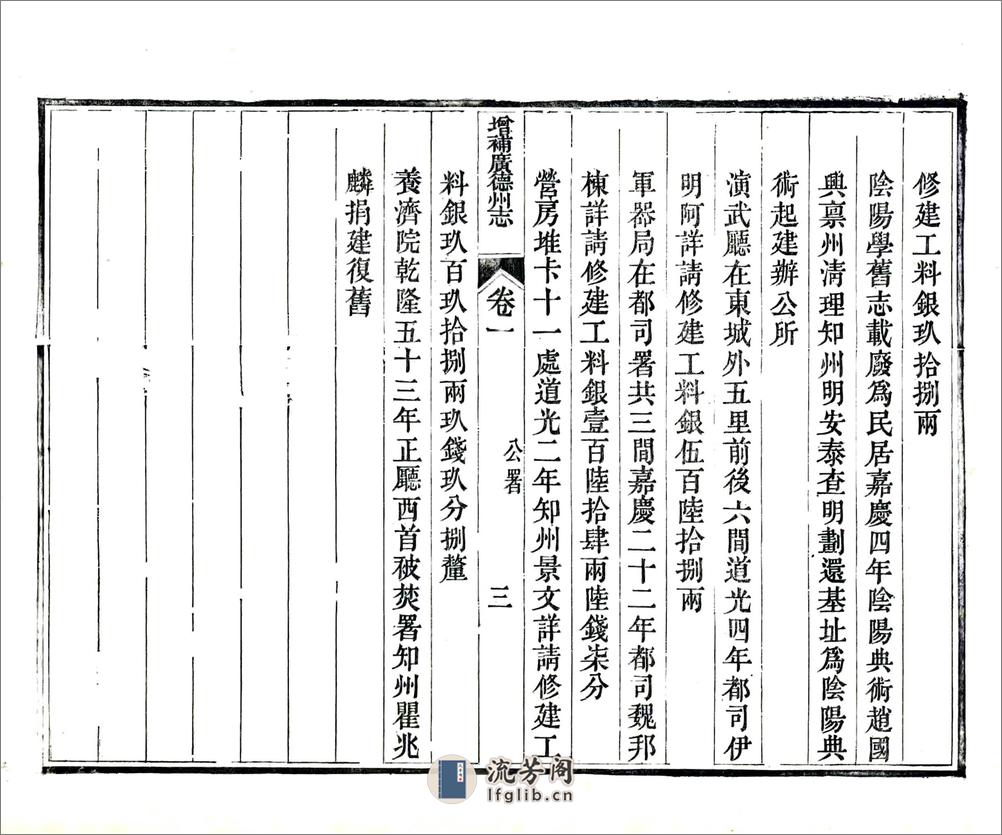 修建工料銀玖拾捌兩
陰陽學舊志載廢爲民居嘉慶四年陰陽典術趙國
興禀州淸理知州明安泰查明劃還基址爲陰陽典
術起建辦公所
演武廳在東城外五里前後六間道光四年都司伊
明阿詳請修建工料銀伍百陸拾捌兩
軍器局在都司署共三間嘉慶二十二年都司魏邦
棟詳請修建工料銀壹百陸拾肆兩陸錢柒分
營房堆卡十一處道光二年知州景文詳請修建工
增補廣德州志
卷一
公署
三
料銀玖百玖拾捌兩玖錢玖分捌釐
養濟院乾隆五十三年正廳西首被焚署知州瞿兆
麟捐建復舊
流芳阁
lfglib.cn